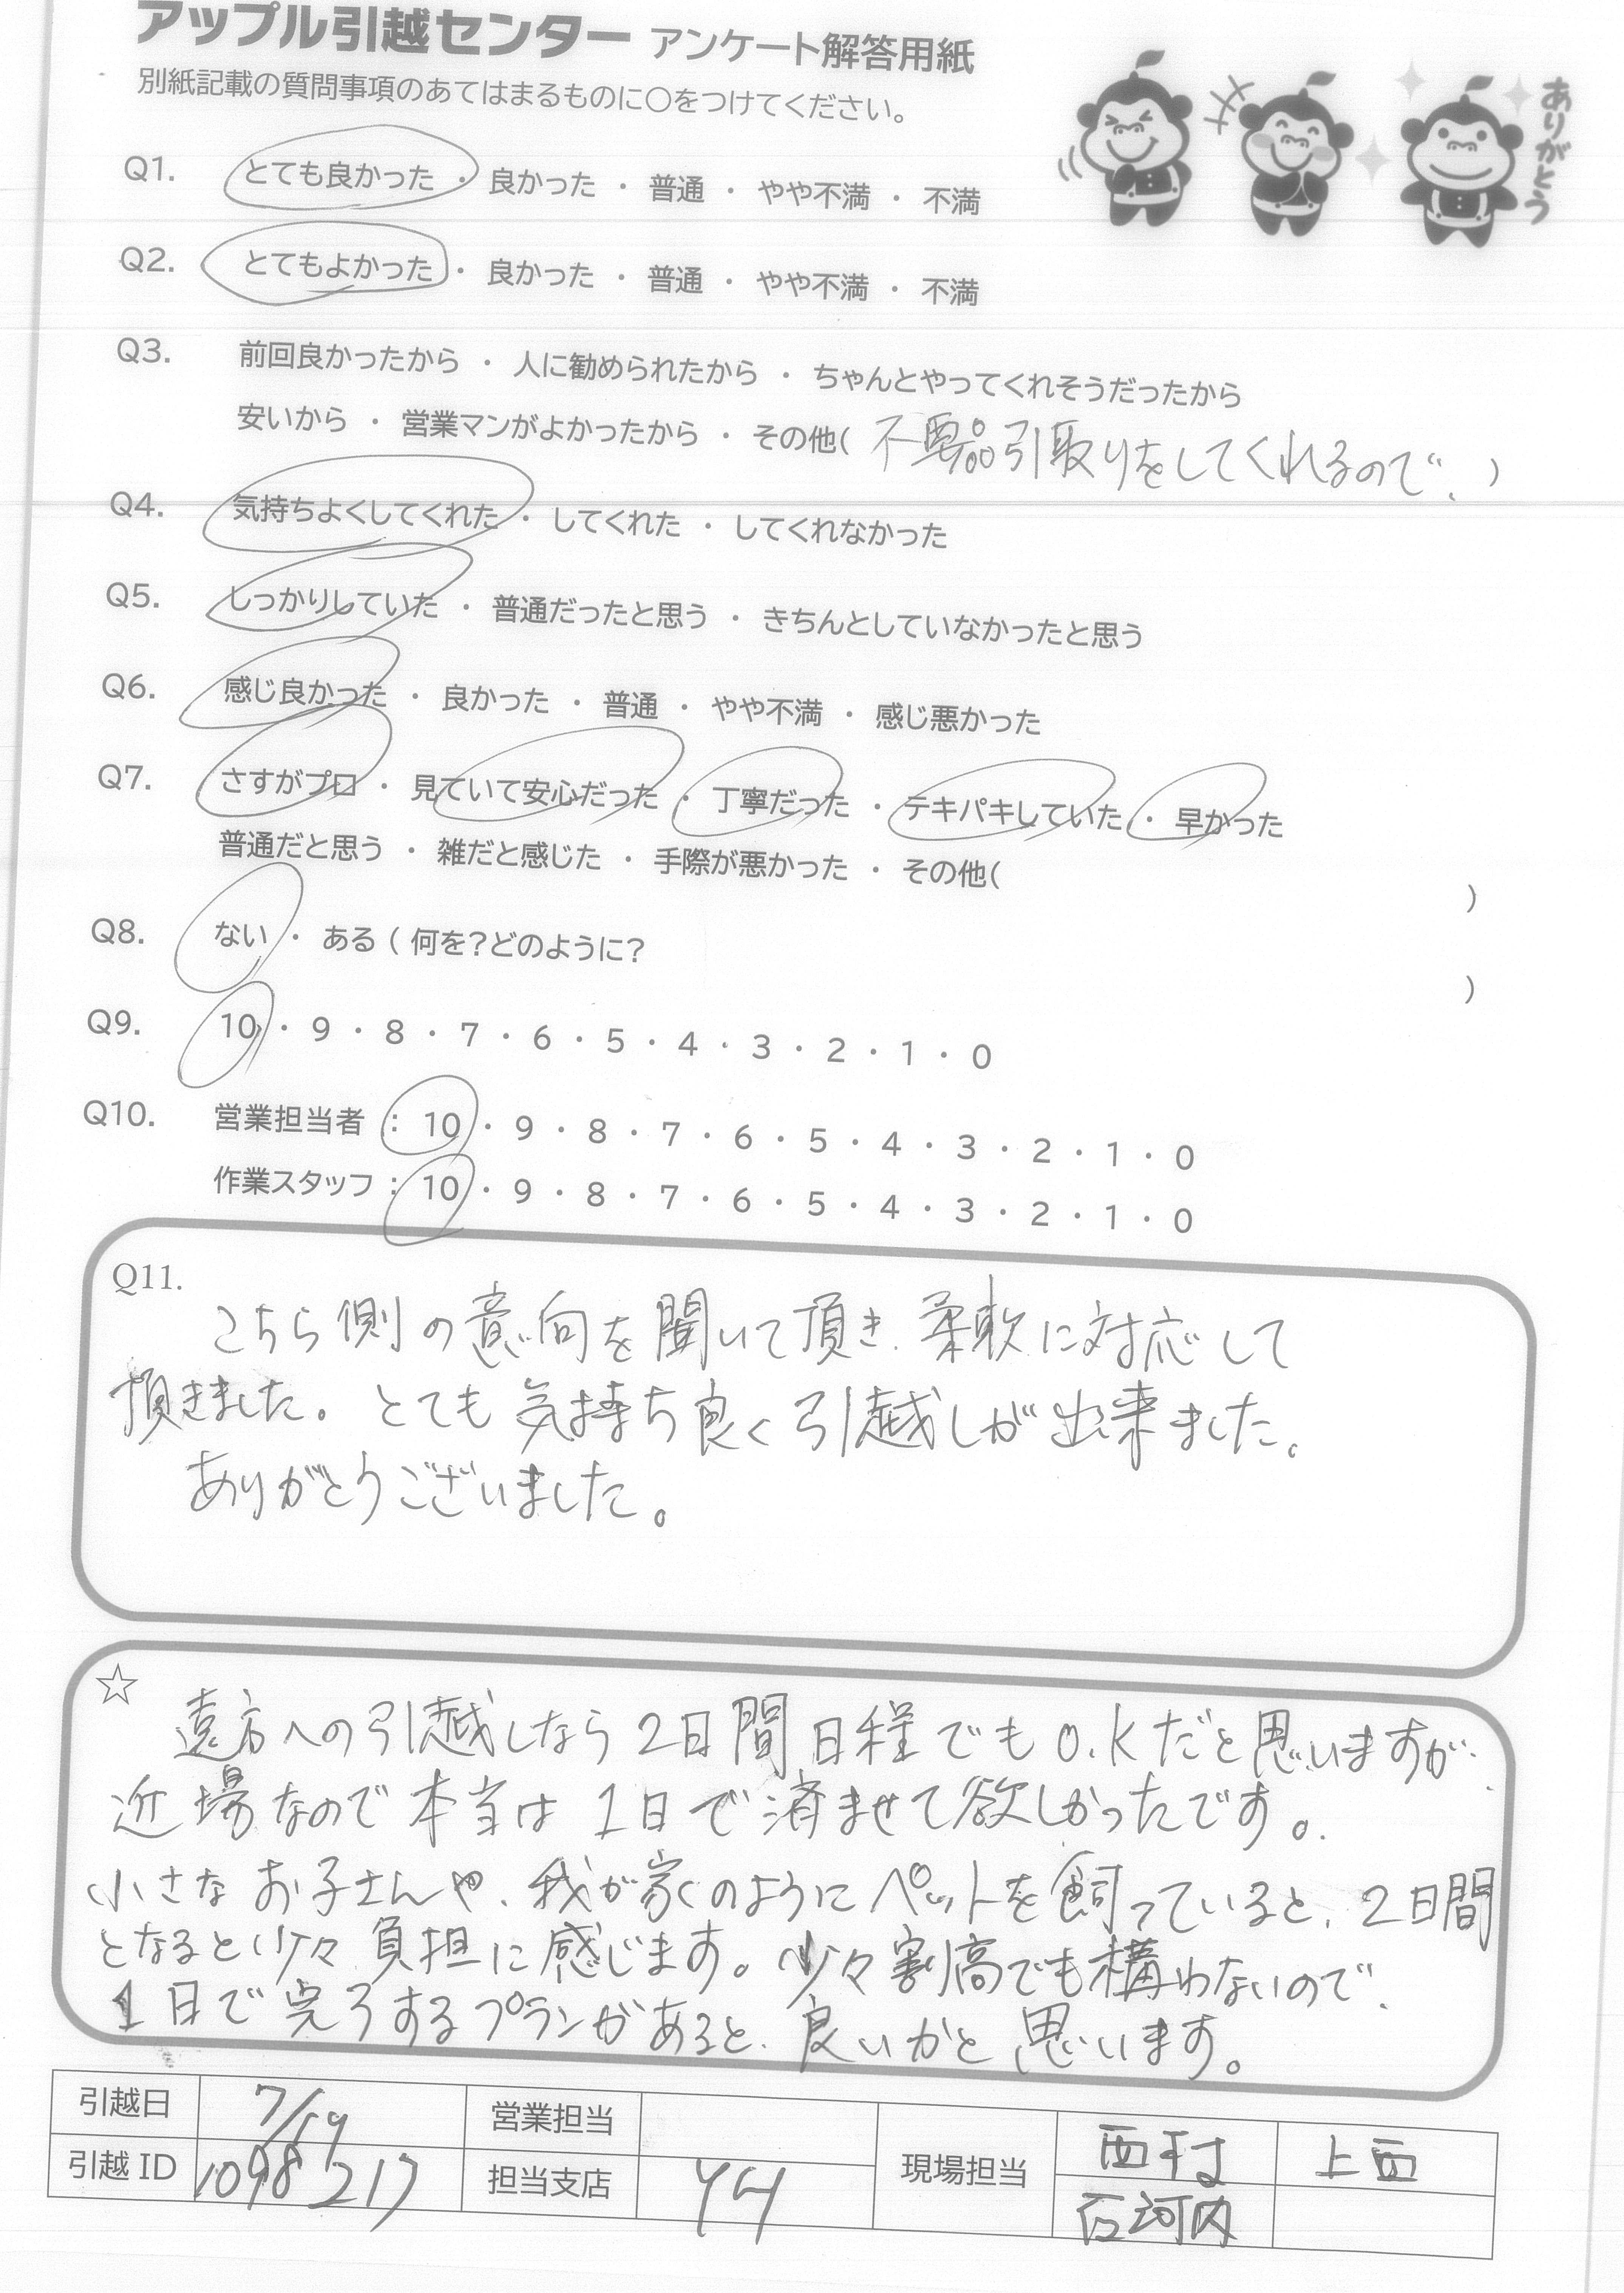 アップル引越センター アンケート解答用紙
別紙記載の質問事項のあてはまるものに○をつけてください。
ありがとう
Q1. とても良かった ・ 良かった ・ 普通 ・ やや不満 ・ 不満
Q2. とてもよかった ・ 良かった ・ 普通 ・ やや不満 ・ 不満
Q3. 前回良かったから ・ 人に勧められたから ・ ちゃんとやってくれそうだったから
安いから ・ 営業マンがよかったから ・ その他( 不要品引取りをしてくれるので、)
Q4. 気持ちよくしてくれた ・ してくれた ・ してくれなかった
Q5. しっかりしていた ・ 普通だったと思う ・ きちんとしていなかったと思う
Q6. 感じ良かった ・ 良かった ・ 普通 ・ やや不満 ・ 感じ悪かった
Q7. さすがプロ ・ 見ていて安心だった ・ 丁寧だった ・ テキパキしていた ・ 早かった
普通だと思う ・ 雑だと感じた ・ 手際が悪かった ・ その他( )
Q8. ない ・ ある ( 何を?どのように? )
Q9. 10 ・ 9 ・ 8 ・ 7 ・ 6 ・ 5 ・ 4 ・ 3 ・ 2 ・ 1 ・ 0
Q10. 営業担当者 : 10 ・ 9 ・ 8 ・ 7 ・ 6 ・ 5 ・ 4 ・ 3 ・ 2 ・ 1 ・ 0
作業スタッフ : 10 ・ 9 ・ 8 ・ 7 ・ 6 ・ 5 ・ 4 ・ 3 ・ 2 ・ 1 ・ 0
Q11.
こちら側の意向を聞いて頂き、柔軟に対応して
頂きました。とても気持ち良く引越しが出来ました。
ありがとうございました。
☆
遠方への引越しなら2日間日程でもO.Kだと思いますが、
近場なので本当は1日で済ませて欲しかったです。
小さなお子さんや、我が家のようにペットを飼っていると、2日間
となると少々負担に感じます。少々割高でも構わないので、
1日で完了するプランがあると、良いかと思います。
引越日 7/19 営業担当 現場担当 西村 上西
引越ID 1098217 担当支店 44 石河内